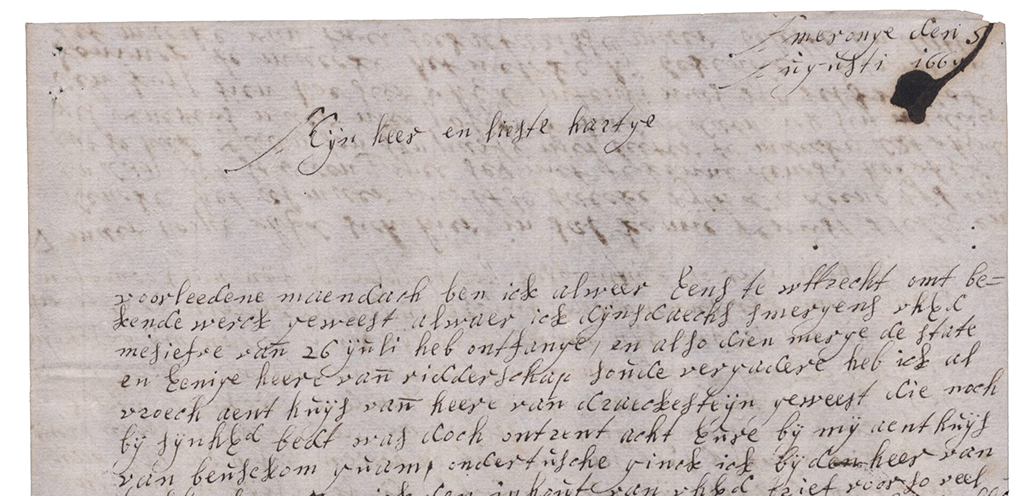 Amerongē den 5
Augusti 166
Mijn heer en lieste hartge
voorleedene maendach ben ick alweer Eens te wttrecht omt be=
kende werck geweest alwaer ick dijnsdaechs smergens uhEd
misiefve van 26 Juli heb ontfange, en also dien merge de state
en Eenige heere van ridderschap soude vergadere heb ick al
vroech aent huijs van heere van draeckesteijn geweest die noch
bij sijnhEd bedt was doch ontrent acht Eure bij mij aent huijs
van beusekom quam, ondertusche ginck ick bij den heer van
ick den inhout van uhEd brief voor so veel